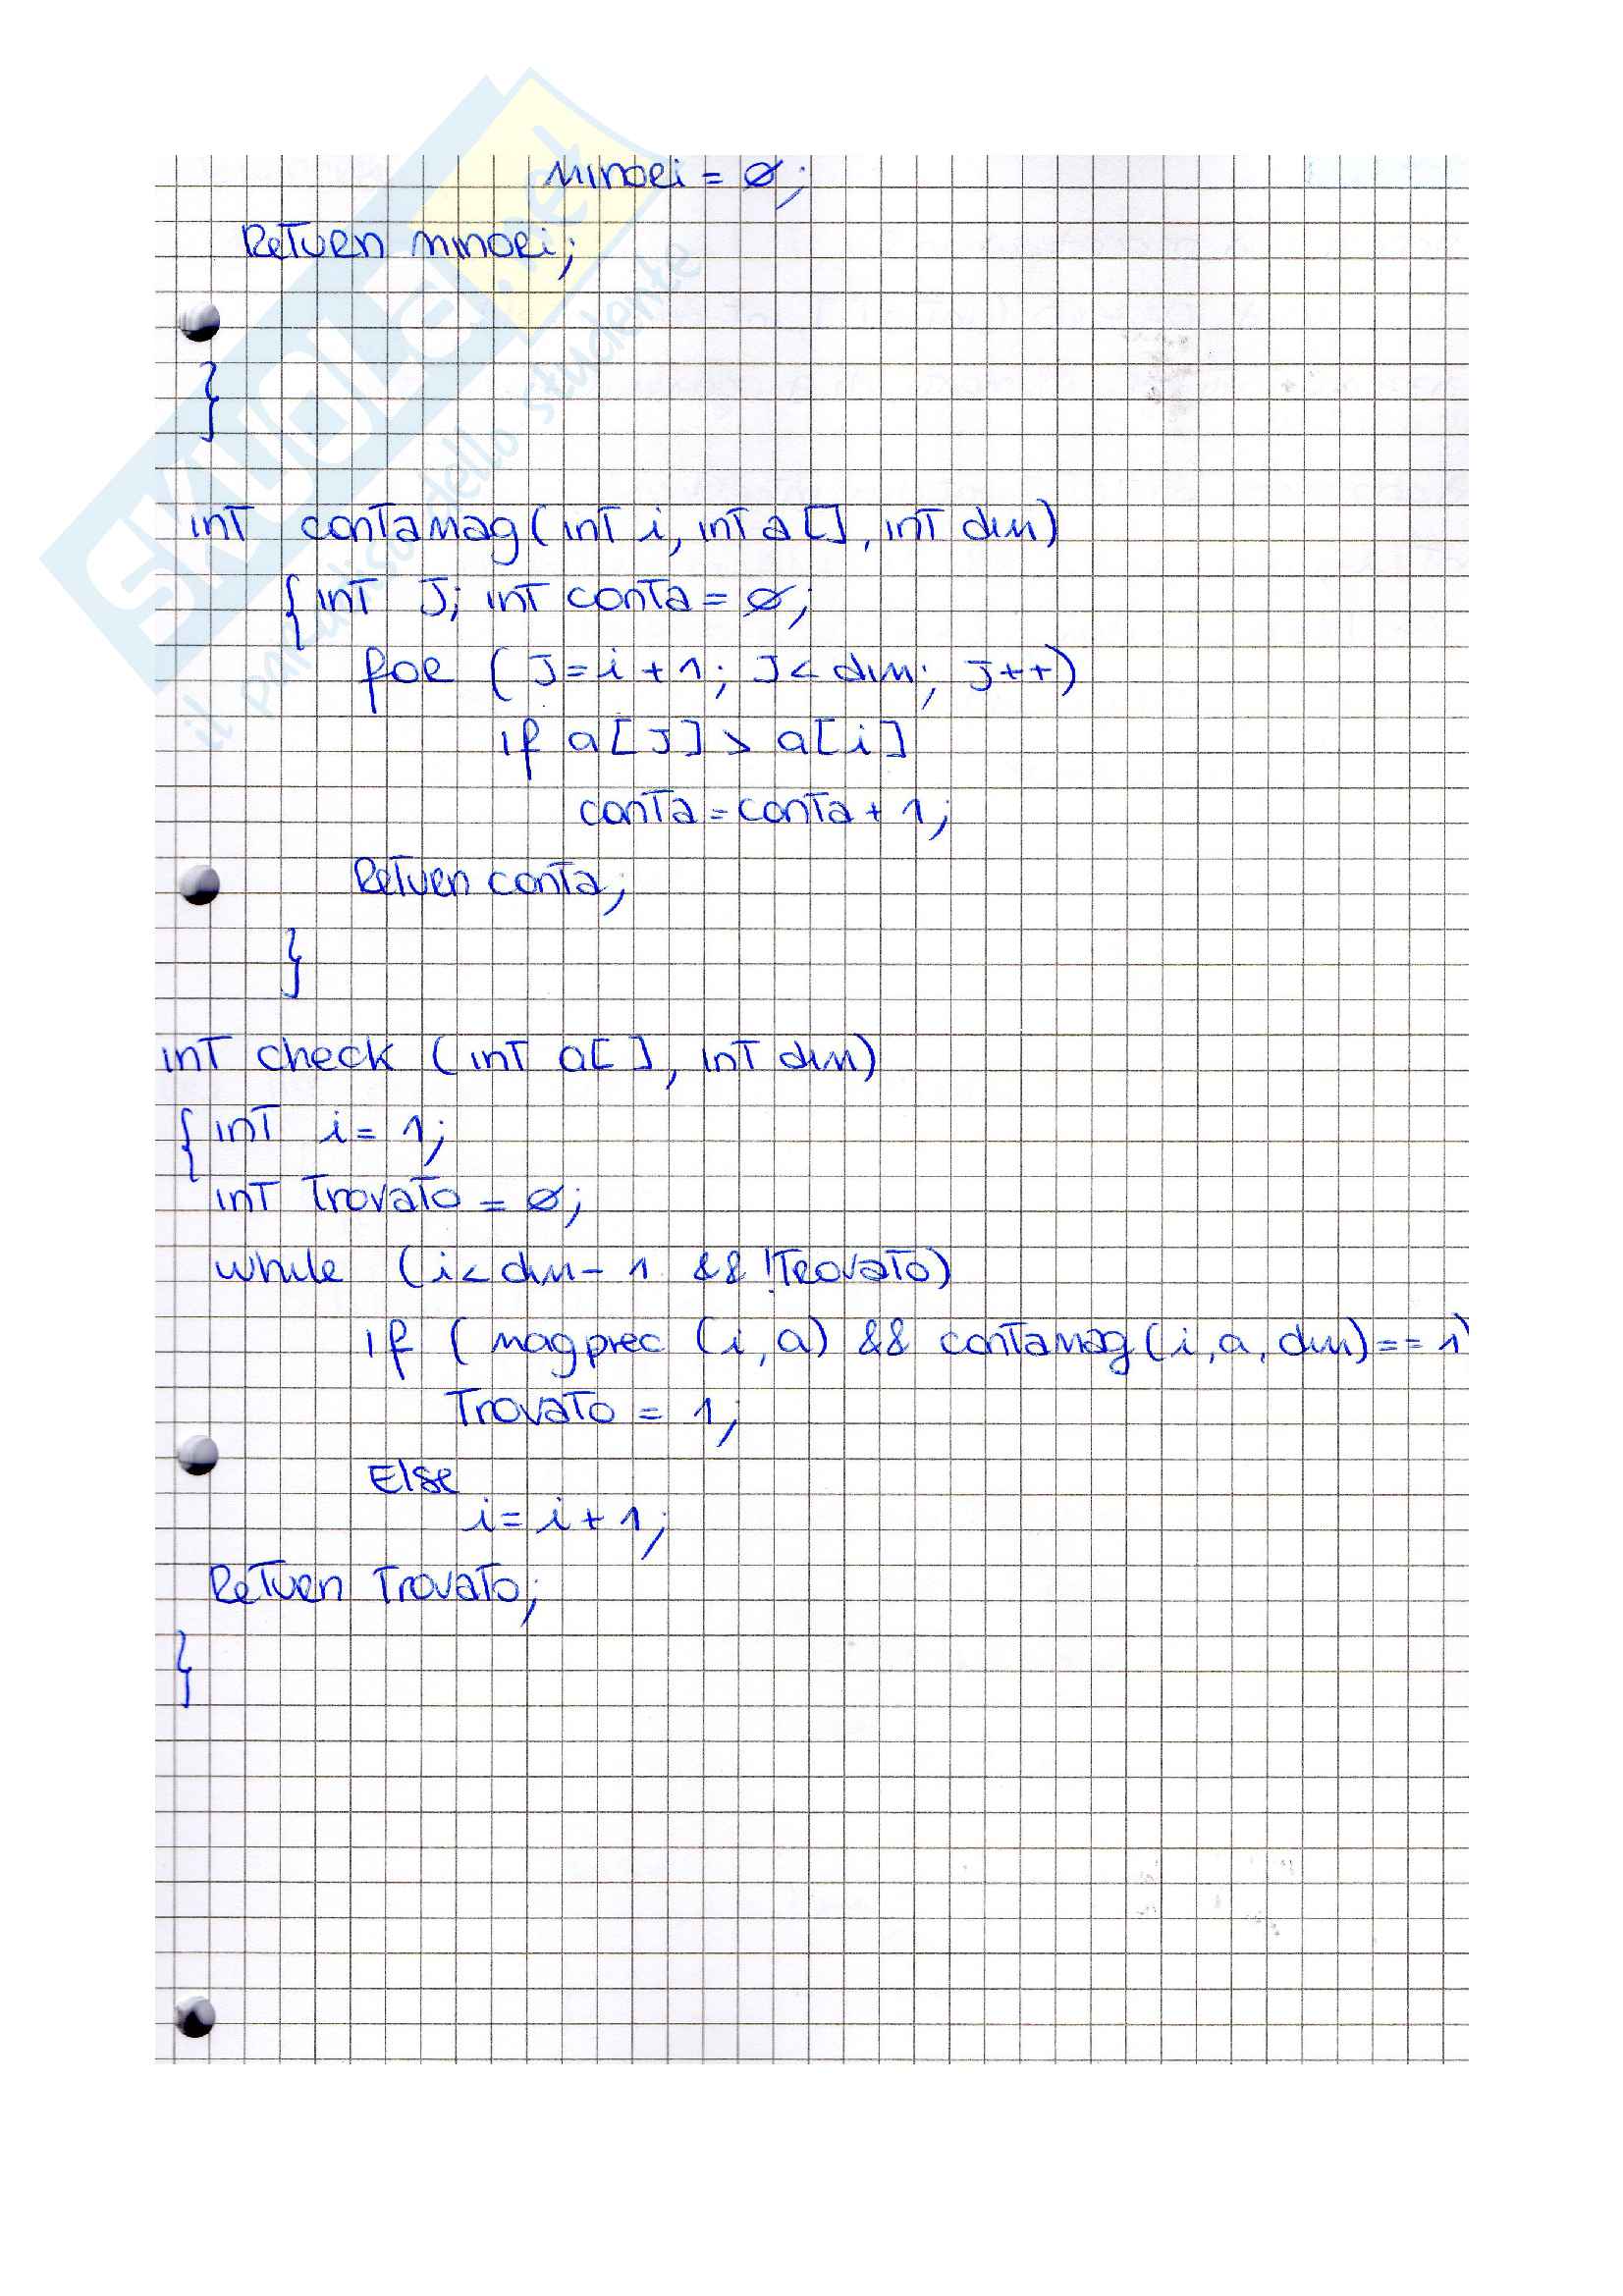 minori = 0;
Return minori;
}
int contamag(int i, int a[], int dim)
{int J; int conta = 0;
for (J=i+1; J<dim; J++)
if a[J] > a[i]
conta=conta+1;
Return conta;
}
int check (int a[], int dim)
{int i=1;
int Trovato = 0;
while (i<dim-1 && !Trovato)
if (magprec (i,a) && contamag(i,a,dim)==1)
Trovato = 1;
Else
i=i+1;
Return Trovato;
}
SKUOLA.net
il paradiso dello studente